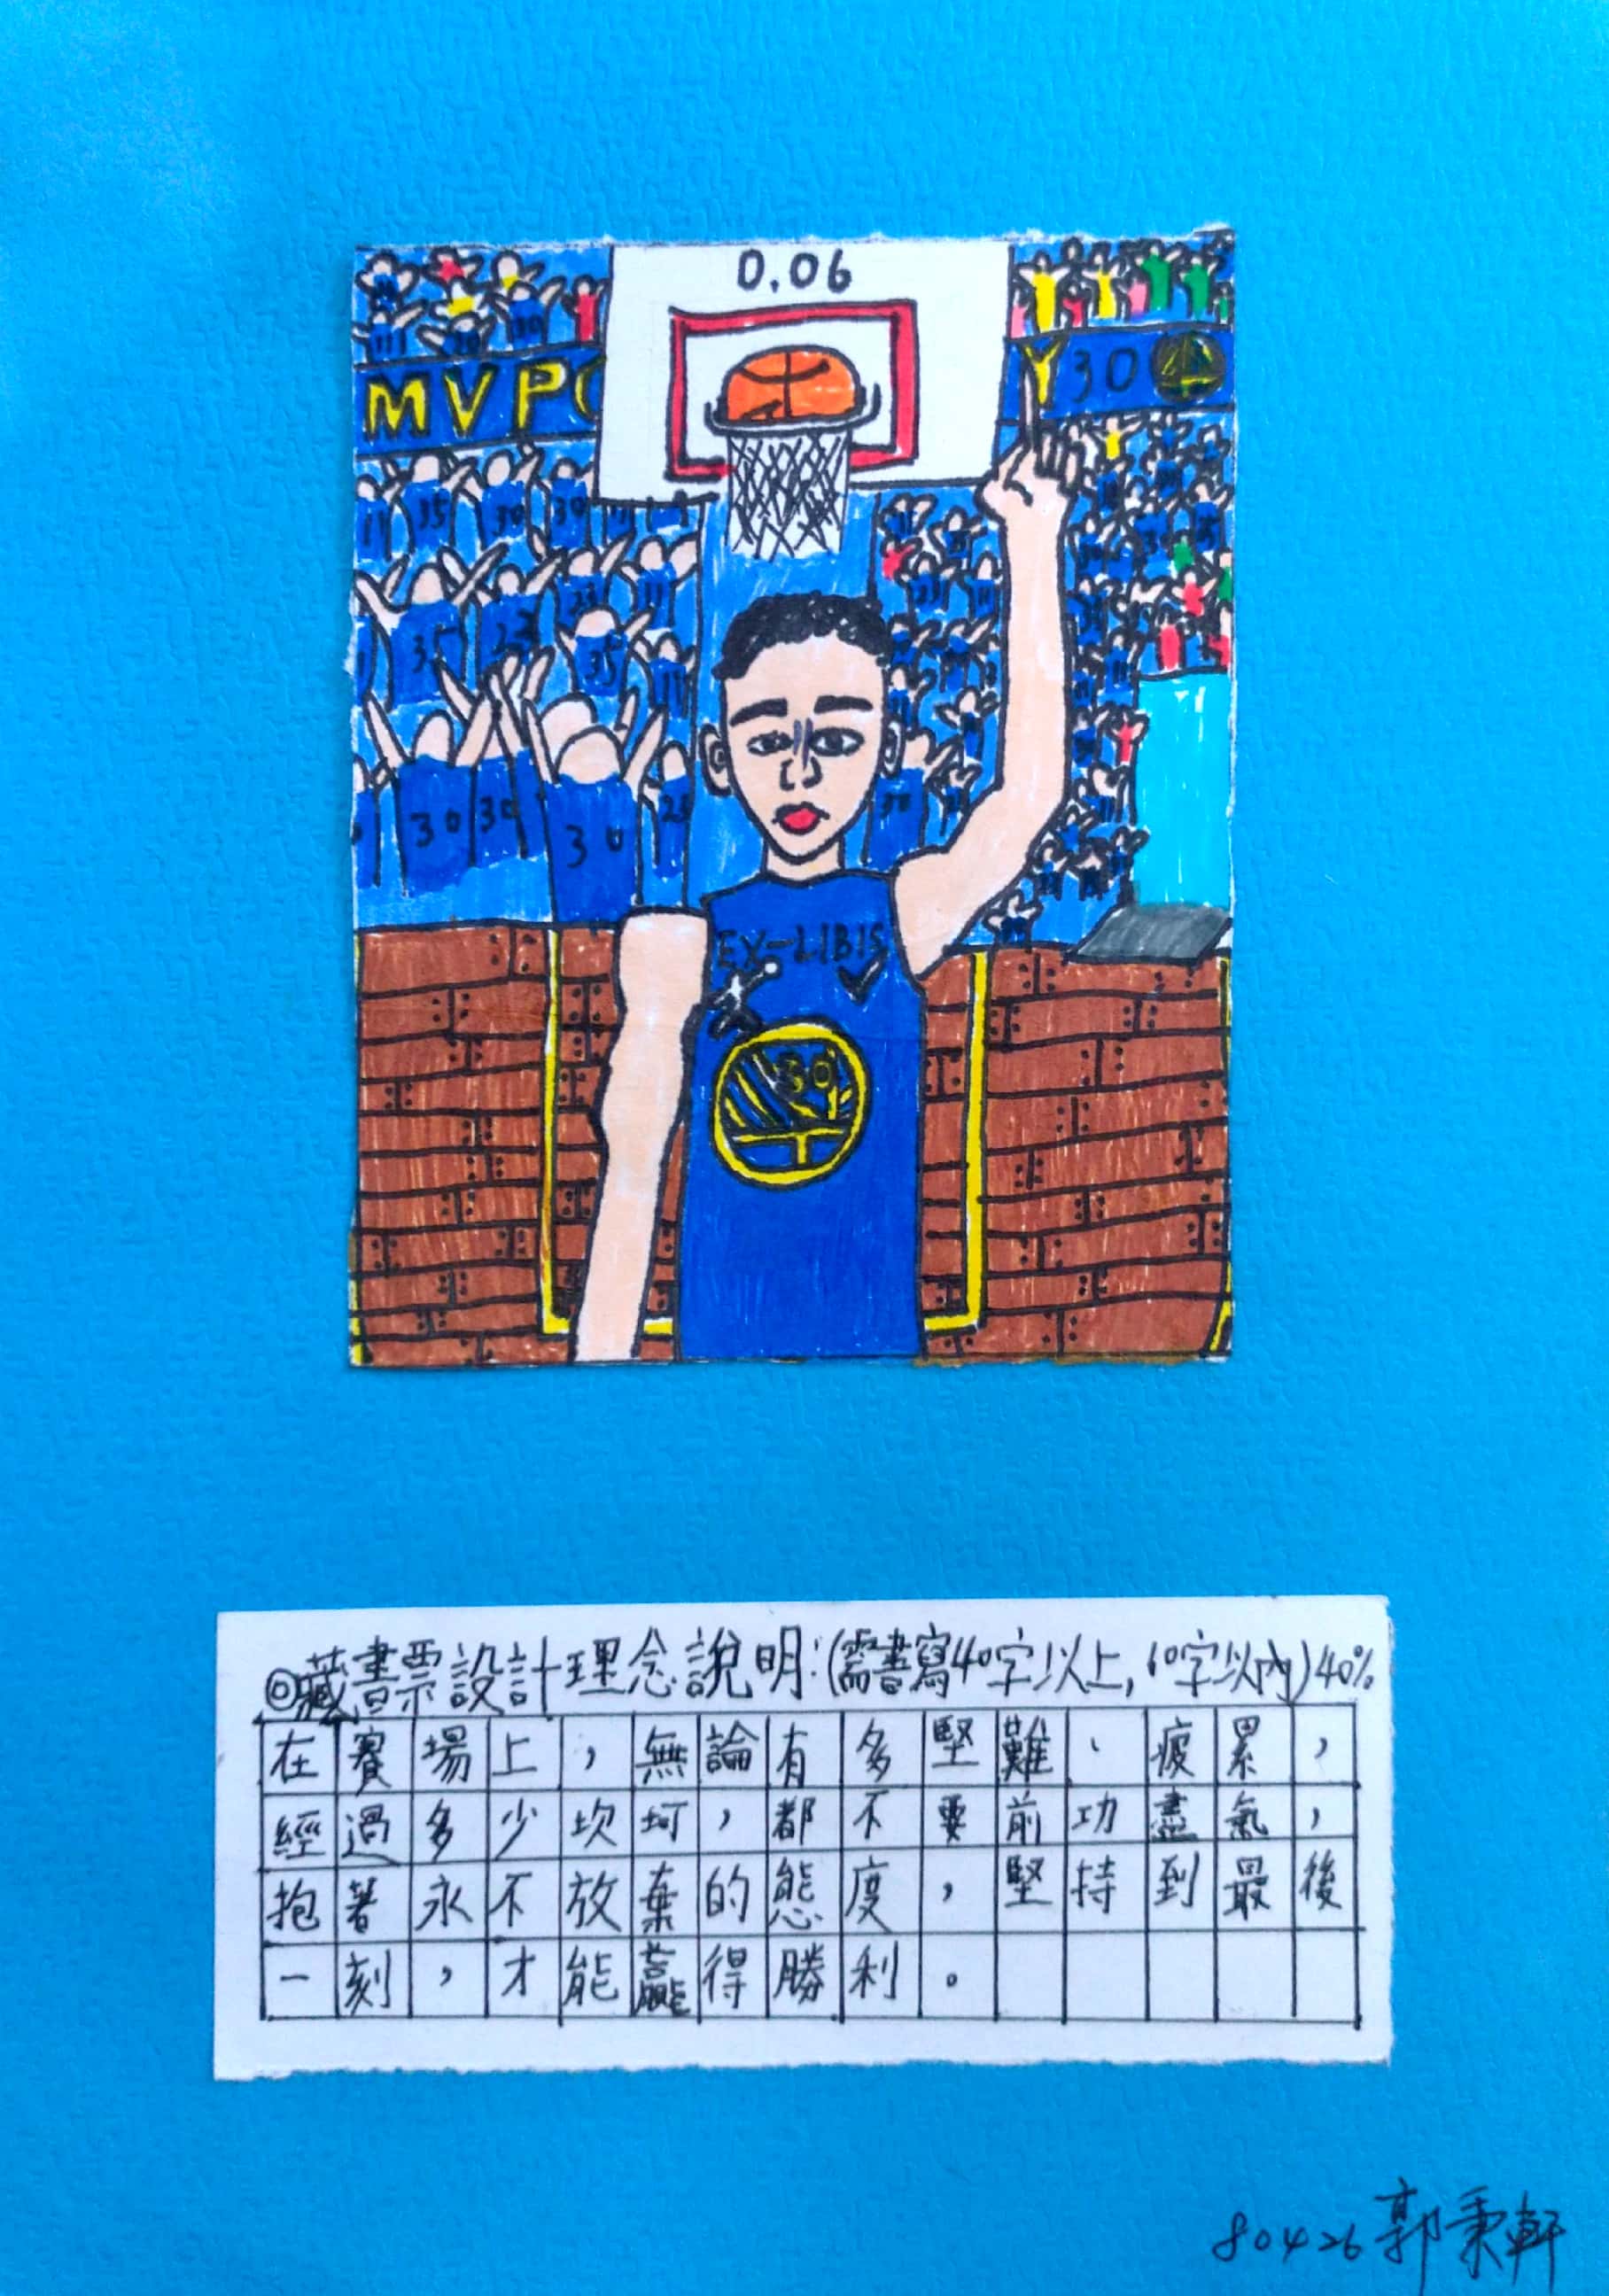 0.06
MVPC
Y 30
11 35 30 30
35 23 35 11
30 30 30 23
EX-LIBIS
30
◎藏書票設計理念說明:(需書寫40字以上,60字以內)40%
在賽場上,無論有多堅難、疲累,
經過多少坎坷,都不要前功盡氣,
抱著永不放棄的態度,堅持到最後
一刻,才能贏得勝利。
80426 郭秉軒